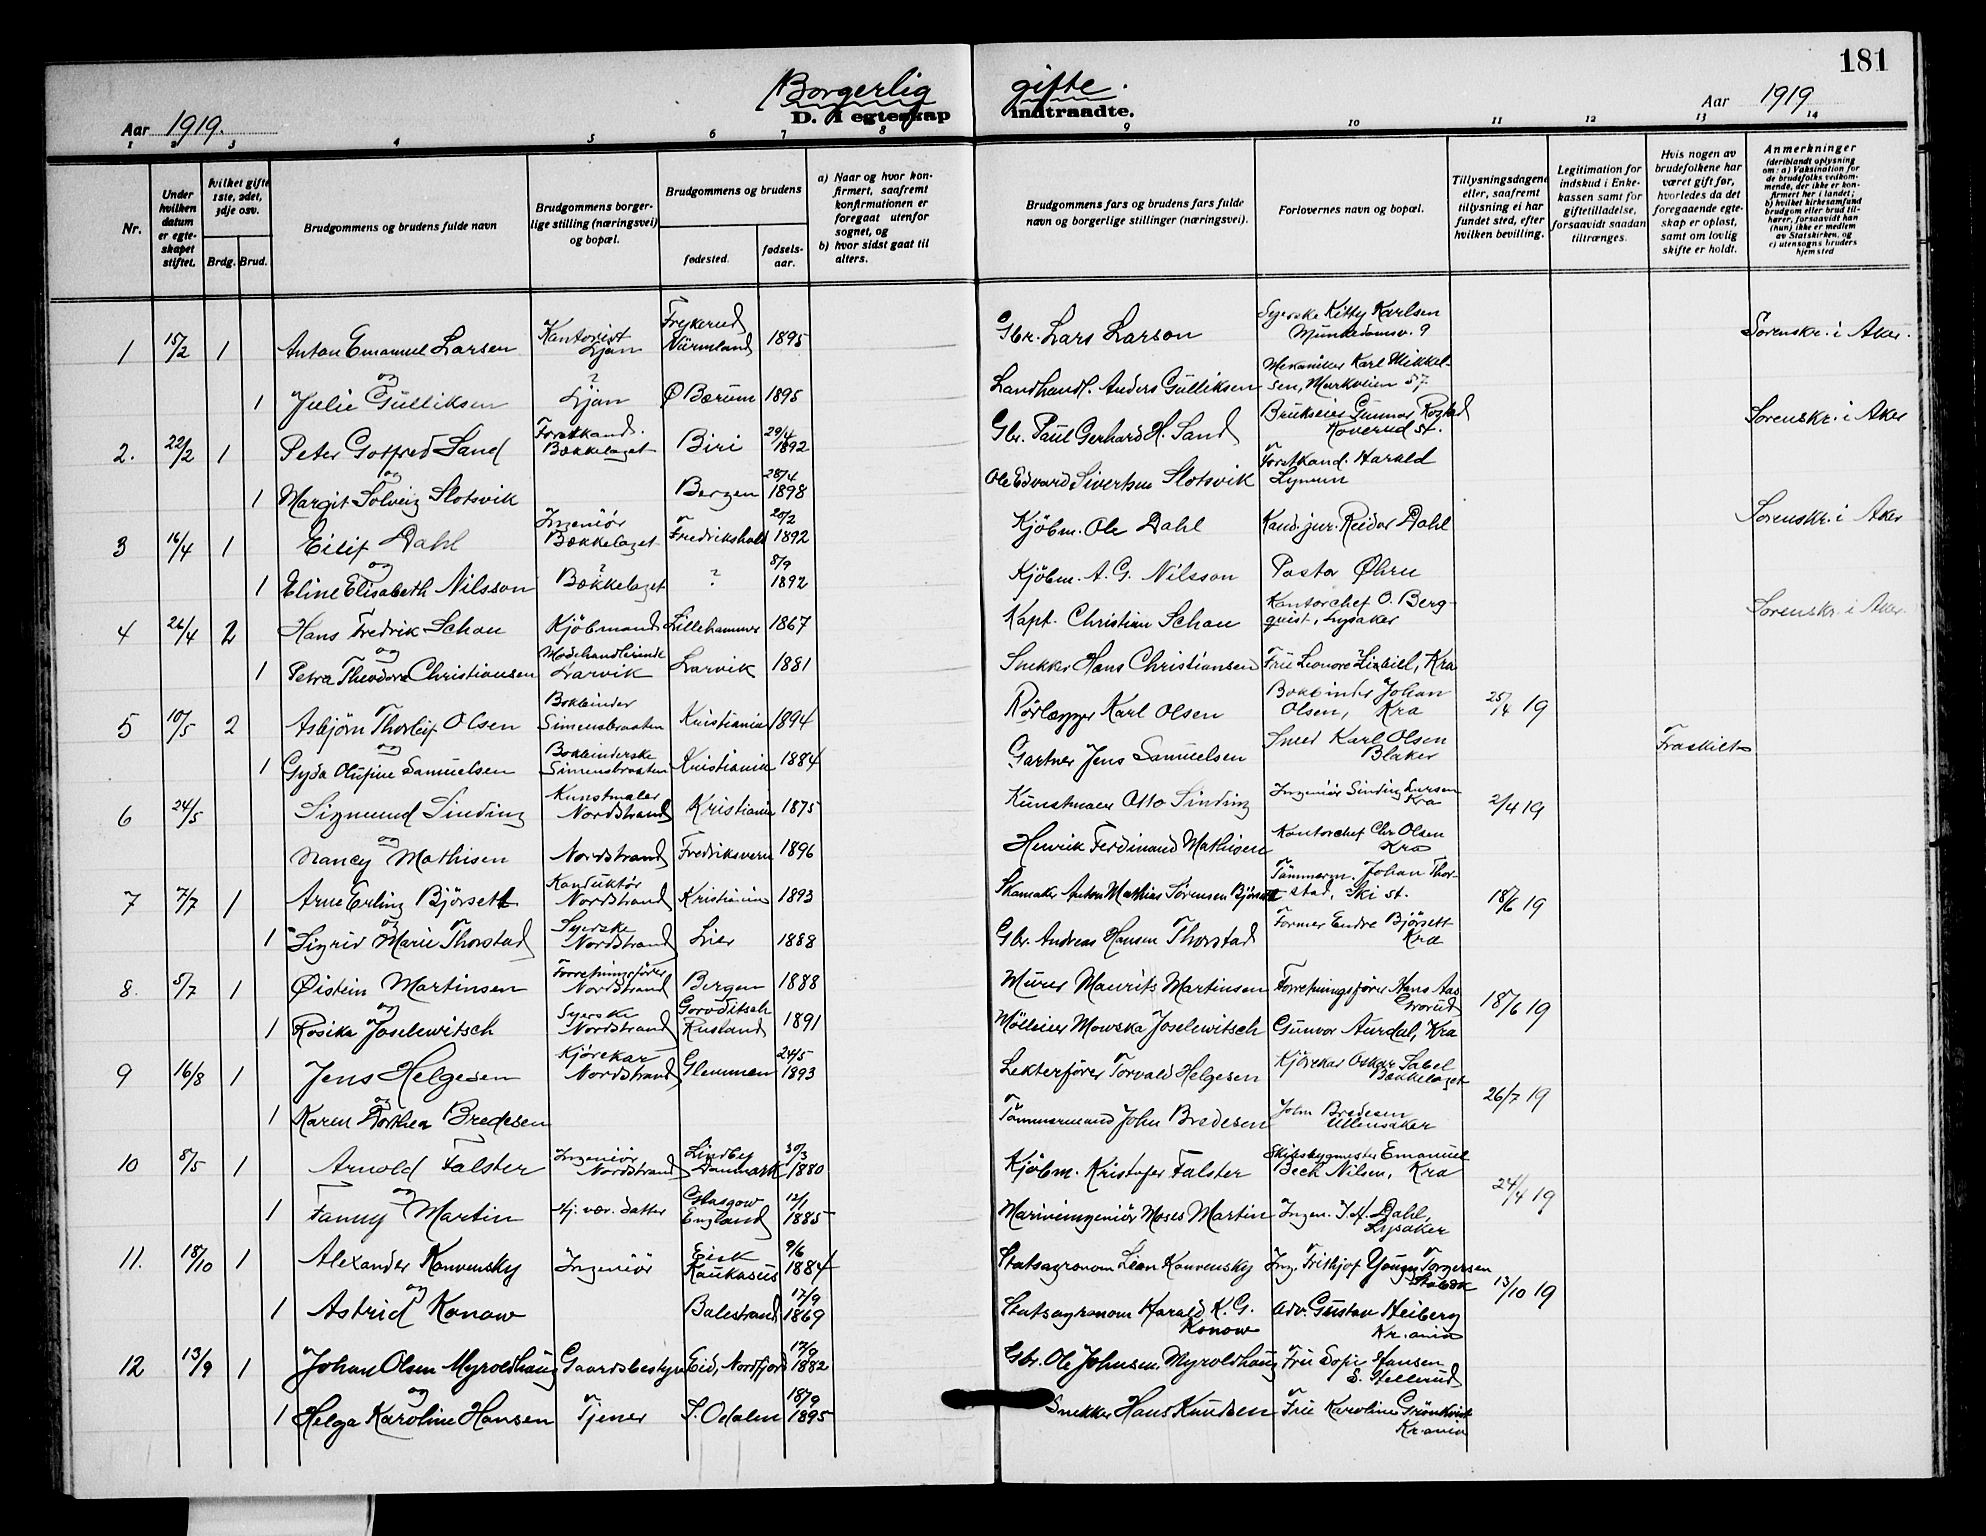 181
Borgerlig gifte.
Aar 1919.
D. I egteskap indtraadte.
Aar 1919
1 2 3 4 5 6 7 8 9 10 11 12 13 14
Nr.
Under hvilken datum er egteskapet stiftet.
hvilket gifte 1ste, 2det, 3dje osv.
Brdg. Brud.
Brudgommens og brudens fulde navn
Brudgommens borgerlige stilling (næringsvei) og bopæl.
Brudgommens og brudens
fødested.
fødselsaar.
a) Naar og hvor konfirmert, saafremt konfirmationen er foregaat utenfor sognet, og
b) hvor sidst gaat til alters.
Brudgommens fars og brudens fars fulde navn og borgerlige stillinger (næringsvei).
Forlovernes navn og bopæl.
Tillysningsdagene eller, saafremt tillysning ei har fundet sted, efter hvilken bevilling.
Legitimation for indskud i Enkekassen samt for giftetilladelse, forsaavidt saadan tiltrænges.
Hvis nogen av brudefolkene har været gift før, hvorledes da det foregaaende egteskap er opløst, samt om lovlig skifte er holdt.
Anmerkninger (deriblandt oplysning om: a) Vaksination for de brudefolks vedkommende, der ikke er konfirmert her i landet; b) hvilket kirkesamfund brudgom eller brud tilhører, forsaavidt han (hun) ikke er medlem av Statskirken, og c) utensogns bruders hjemsted
1 15/2 1 Anton Emanuel Larsen Kantorist Ljan Frykerud Värmland 1895 Gbr. Lars Larson Syerske Kitty Karlsen Munkedamsv. 9 Sorenskr. i Aker.
og
1 Julie Gulliksen ? Ljan Ø Bærum 1895 Landhandl. Anders Gulliksen Mekaniker Karl Mikkelsen, Markveien 57
2. 22/2 1 Peter Gotfred Sand Forstkand. Bækkelaget Biri 29/4 1892 Gbr. Paul Gerhard H. Sand Brukseier Gunnar Rogstad Sorenskr. i Aker
og
1 Margit Solveig Slotsvik Bergen 28/4 1898 Ole Edvard Sivertsen Slotsvik Forstkand. Harald
3 16/4 1 Eilif Dahl Ingeniör Bækkelaget Fredrikshald 20/2 1892 Kjöbm. Ole Dahl Kand. jur. Reidar Dahl Sorenskr. i Aker
og
1 Eline Elisabeth Nilsson ? Bækkelaget ? 8/9 1892 Kjöbm. A. G. Nilsson Pastor Øhrn
4 26/4 2 Hans Fredrik Schou Kjöbmand Lillehammer 1867 Kapt. Christian Schou Kantorchef O. Bergquist, Lysaker Sorenskr. i Aker.
og
1 Petra Theodora Christiansen Modehandlerinde Larvik Larvik 1881 Snekker Hans Christiansen Fru Leonore Kra
5 10/5 2 Asbjörn Thorleif Olsen Bokbinder Simensbraaten Kristiania 1894 Rörlægger Karl Olsen Bokbinder Johan Olsen, Kra 25/4 19
og
1 Gyda Olufine Samuelsen Bokbinderske Simensbraaten Kristiania 1884 Gartner Jens Samuelsen Smed Karl Olsen Blaker Fraskilt
6 24/5 Sigmund Sinding Kunstmaler Nordstrand Kristiania 1875 Kunstmaler Otto Sinding Ingeniör Sinding Larsen Kra 2/4 19
og
Nancy Mathisen Nordstrand Fredriksvern 1896 Henrik Ferdinand Mathisen Kontorchef Chr. Olsen Kra
7 7/7 1 Arne Erling Bjørsett Konduktør Nordstrand Kristiania 1893 Skomaker Anton Mathias Sørensen Bjørsett Tömmerm. Johan Thorstad, Ski st. 18/6 19
og
1 Sigrid Marie Thorstad Syerske Nordstrand Lier 1888 Gbr. Andreas Hansen Thorstad Former Endre Bjørsett Kra
8. 5/7 1 Øistein Martinsen Forretningsfører Nordstrand Bergen 1888 Murer Maurits Martinsen Forretningsfører Hans Aas Grorud 18/6 19
og
1 Rosika Joselewitsch Syerske Nordstrand Gorvditsch Rusland 1891 Mölleier Mowska Joselewitsch Gunvor Aurdal, Kra
9 16/8 1 Jens Helgesen Kjørekar Nordstrand Glemmen 24/5 1893 Lekterfører Torvald Helgesen Kjörekar Oskar Sabel Bækkelaget 26/7 19
og
1 Karen Dorthea Bredesen Tömmermand John Bredesen John Bredesen Ullensaker
10 8/5 1 Arnold Falster Ingeniör Nordstrand Lindbey Danmark 30/3 1880 Kjöbm. Kristofer Falster Skibsbygmester Emanuel Beck Nilsen, Kra 24/4 19
og
1 Fanny Martin Hj. vær. datter Glasgow England 12/1 1885 Marineingeniör Moses Martin Ingen. Dahl, Lysaker
11. 18/10 1 Alexander Konvensky Ingeniör Eisk Kaukasus 9/6 1884 Statsagronom Leon Konvensky Ing. Frithjof Young Torgersen Stabæk 13/10 19
og
1 Astrid Konow Balestrand 17/9 1869 Statsagronom Harald K. G. Konow Adv. Gustav Heiberg Kr.ania
12 13/9 1 Johan Olsen Myroldhaug Gaardsbestyrer Eid, Nordfjord 17/9 1882 Gbr. Ole Johnsen Myroldhaug Fru Sofie Hansen S. Stellerud
og
1 Helga Karoline Hansen Tjener S. Odalen 18/9 1895 Snekker Hans Knudsen Fru Karoline Grönkvist Kr.ania